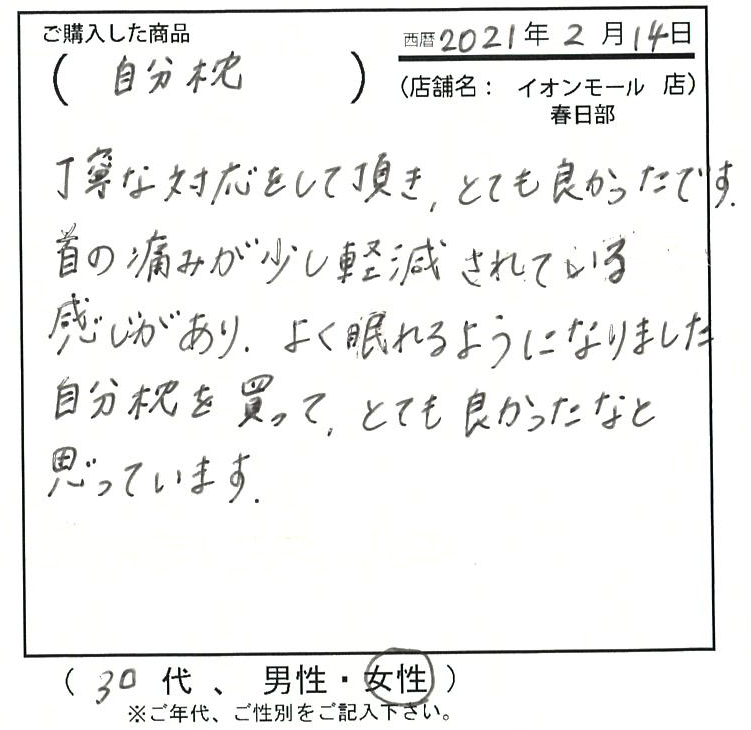 ご購入した商品
(自分枕)
西暦2021年2月14日
(店舗名: イオンモール 店)
春日部
丁寧な対応をして頂き,とても良かったです.
首の痛みが少し軽減されている
感じがあり.よく眠れるようになりました
自分枕を買って,とても良かったなと
思っています.
(30代、男性・女性)
※ご年代、ご性別をご記入下さい。